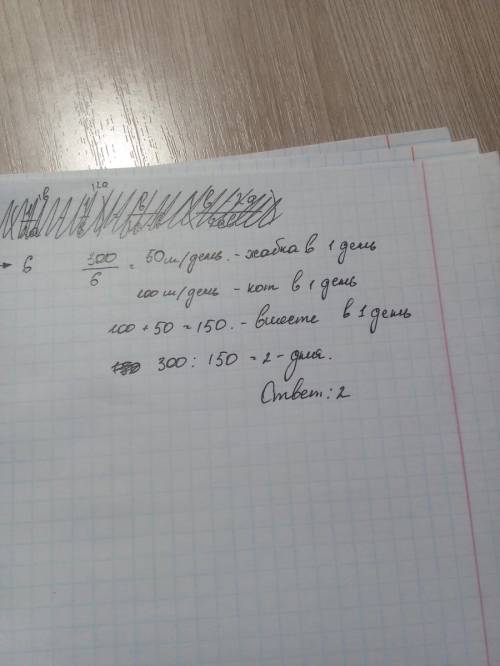 → 6 300/6 = 50м/день. - жабка в 1 день
100 м/день - кот в 1 день
100 + 50 = 150. - вместе в 1 день
300 : 150 = 2 - дня.
Ответ: 2